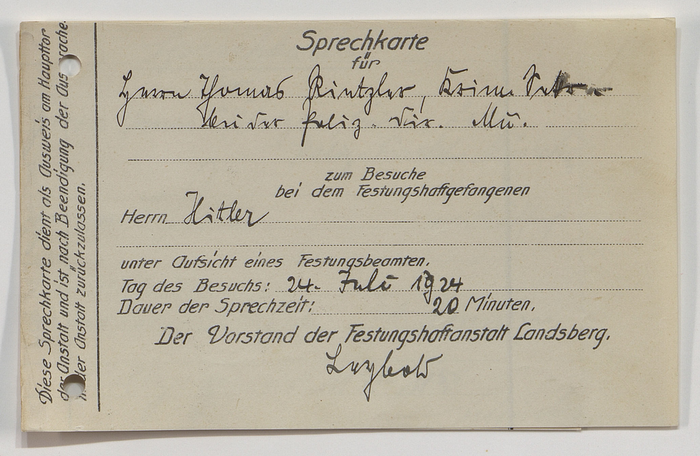 Sprechkarte
für
Herrn Thomas Rintzler, Krim. Sekr.
bei der Poliz. Dir. Mü.
zum Besuche
bei dem Festungshaftgefangenen
Herrn Hitler
unter Aufsicht eines Festungsbeamten.
Tag des Besuchs: 24. Juli 1924
Dauer der Sprechzeit: 20 Minuten.
Der Vorstand der Festungshaftanstalt Landsberg.
Leybold
Diese Sprechkarte dient als Ausweis am Haupttor
der Anstalt und ist nach Beendigung der Aussprache
in der Anstalt zurückzulassen.